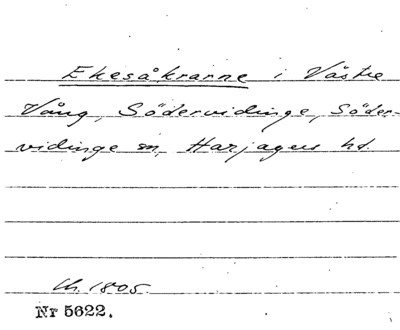 Ekesåkrarne i Västre
Vång, Södervidinge, Söder-
vidinge sn, Harjagers hd.
Lh. 1805.
Nr 5622.